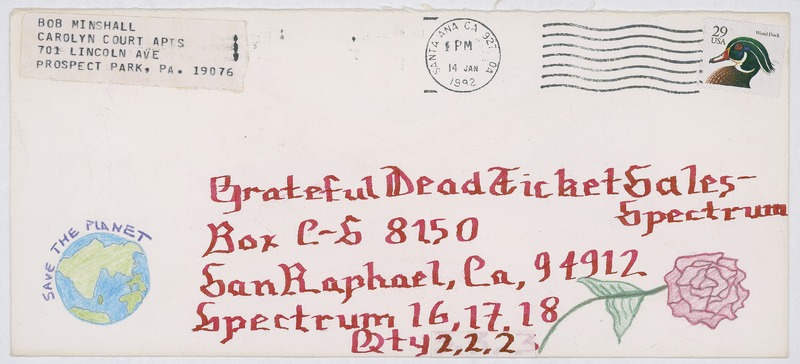 BOB MINSHALL
CAROLYN COURT APTS
701 LINCOLN AVE
PROSPECT PARK, PA. 19076
SANTA ANA CA 927 04
PM
14 JAN
1992
29
USA
Wood Duck
Grateful Dead Ticket Sales-
Spectrum
Box C-S 8150
San Raphael, Ca, 94912
Spectrum 16, 17, 18
Qty 2, 2, 2
SAVE THE PLANET